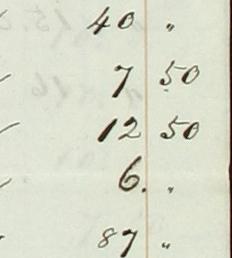 40 "
7 50
12 50
6. "
87 "